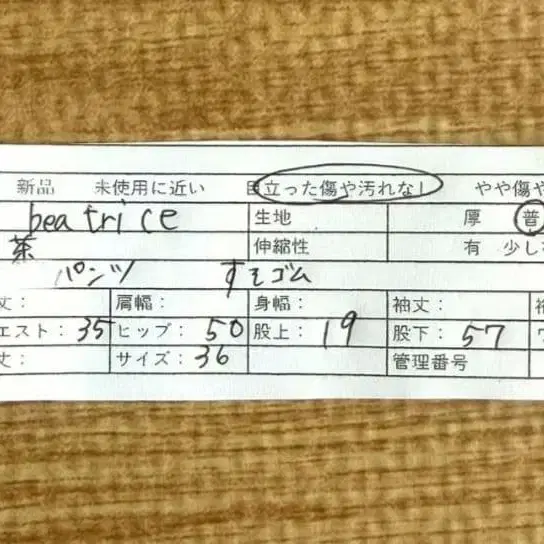 新品 未使用に近い 目立った傷や汚れなし やや傷や
beatrice 生地 厚 普
茶 伸縮性 有 少し
パンツ すそゴム
丈： 肩幅： 身幅： 袖丈：
エスト：35 ヒップ：50 股上：19 股下：57
丈： サイズ：36 管理番号